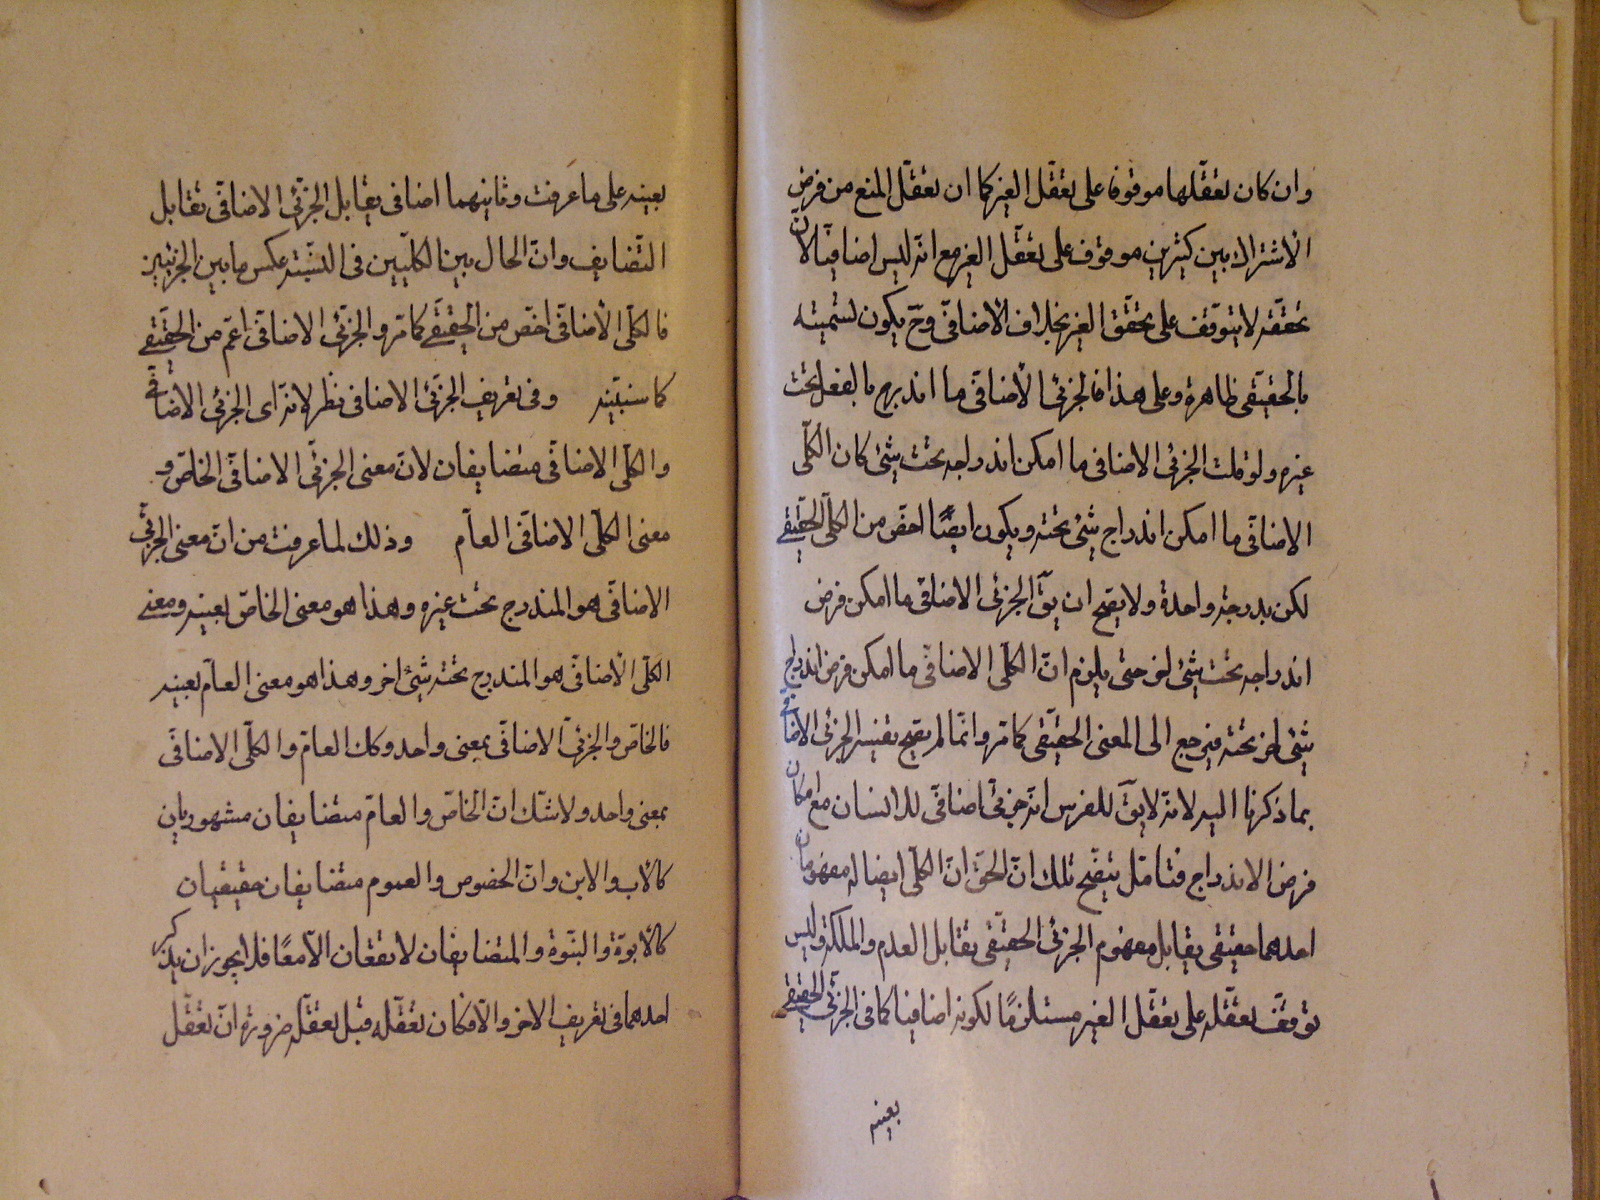 وان كان تعقّلها موقوفا على تعقّل الغير كما ان تعقّل المنع من فرض
الاشتراك بين كثيرين موقوف على تعقّل الغير مع انه ليس اضافيّا لانّ
تحققه لا يتوقف على تحقّق الغير بخلاف الاضافىّ وح يكون تسميته
بالحقيقى ظاهرة وعلى هذا فالجزئى الاضافى ما اندرج بالفعل تحت
غيره ولو قلت الجزئى الاضافى ما امكن اندراجه تحت شئ كان الكلّى
الاضافى ما امكن اندراج شئ تحته ويكون ايضًا اخصّ من الكلّى الحقيقى
لكن بدرجة واحدة ولا يصح ان يقّ الجزئى الاضافى ما امكن فرض
اندراجه تحت شئ اخر حتى يلزم انّ الكلّى الاضافى ما امكن فرض اندراج
شئ اخر تحته فيرجع الى المعنى الحقيقى كما مر وانّما لم يصح تفسير الجزئى الاضافى
بما ذكرنا اليه لانه لا يقّ للفرس انه جزئى اضافى للانسان مع امكان
فرض الاندراج فتامّل يتضح تلك انّ الحقّ انّ الكلّى ايضا له مفهومان
احدهما حقيقى يقابل مفهوم الجزئى الحقيقى تقابل العدم والملكة وليس
توقّف تعقّله على تعقّل الغير مستلزمًا لكونه اضافيا كما فى الجزئى الحقيقى
بعينه
بعينه على ما عرفت وثانيهما اضافى يقابل الجزئى الاضافى تقابل
التّضايف وانّ الحال بين الكلّيين فى النّسبة عكس ما بين الجزئيين
فالكلّى الاضافى اخصّ من الحقيقى كما مر والجزئى الاضافى اعمّ من الحقيقى
كما سنبيّنه وفى تعريف الجزئى الاضافى نظر لانه اى الجزئى الاضافى
والكلّى الاضافى متضايفان لانّ معنى الجزئى الاضافى الخاصّ و
معنى الكلّى الاضافى العامّ وذلك لما عرفت من انّ معنى الجزئى
الاضافى هو المندرج تحت غيره وهذا هو معنى الخاصّ بعينه ومعنى
الكلّى الاضافى هو المندرج تحته شئ اخر وهذا هو معنى العامّ بعينه
فالخاصّ والجزئىّ الاضافى بمعنى واحد وكك العامّ والكلّى الاضافى
بمعنى واحد ولا شكّ انّ الخاصّ والعامّ متضايفان مشهوريان
كالاب والابن وانّ الخصوص والعموم متضايفان حقيقيان
كالابوّة والبنوّة والمتضايفان لا يتعقّلان الّا معًا فلا يجوز ان يذكر
احدهما فى تعريف الاخر والّا فكان تعقّله قبل تعقّله ضرورة انّ تعقّل